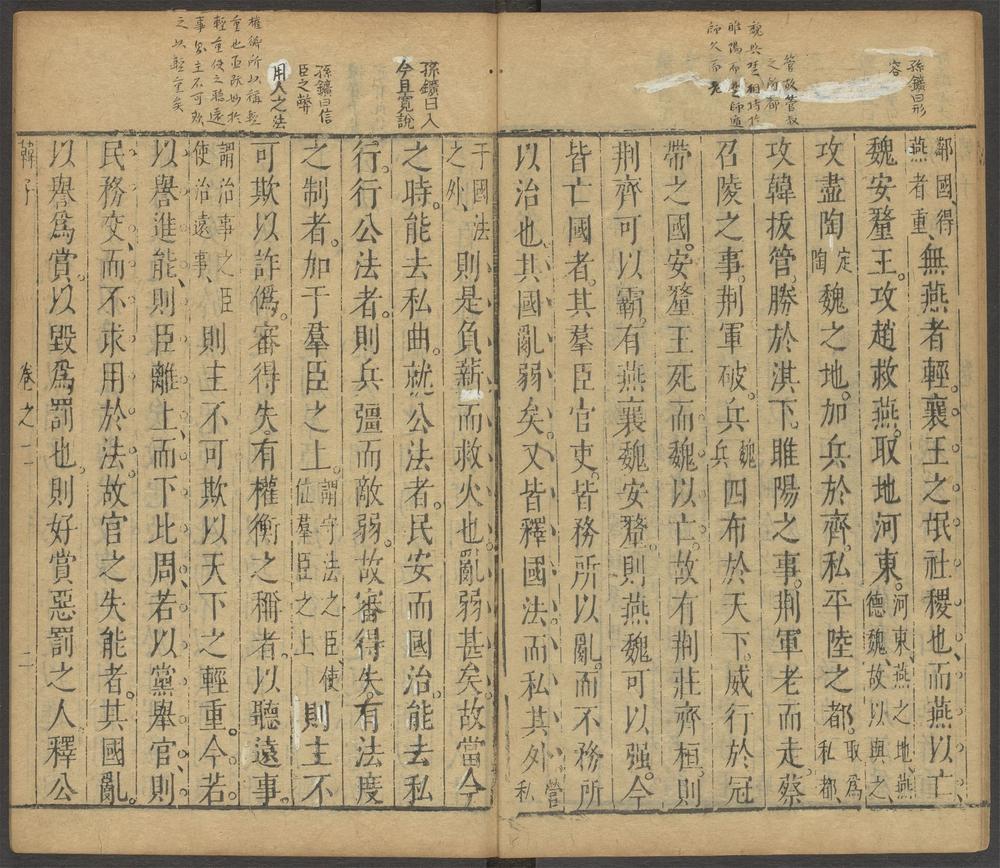 孫鑛曰形
容
管故管叔
之所都
魏與楚相持於
睢陽而楚師遁
師久而老
鄰國、得燕者重、無燕者輕。襄王之氓社稷也、而燕以亡、
魏安釐王。攻趙救燕。取地河東。河東、燕之地、燕德魏、故以與之、
攻盡陶定陶魏之地。加兵於齊。私平陸之都。取爲私都、
攻韓拔管勝於淇下。睢陽之事。荆軍老而走。蔡
召陵之事。荆軍破。兵魏兵四布於天下。威行於冠
帶之國。安釐王死而魏以亡。故有荆莊齊桓。則
荆齊可以霸。有燕襄魏安釐。則燕魏可以强。今
皆亡國者。其羣臣官吏。皆務所以亂。而不務所
以治也。其國亂弱矣。又皆釋國法而私其外。營私
孫鑛曰入
今且寛說
孫鑛曰信
臣之弊
用人之法
權衡所以稱輕
重也臣既妙於
輕重使之聽遠
事則主不可欺
之以輕重矣
于國法之外、則是負薪而救火也。亂弱甚矣。故當今
之時。能去私曲。就公法者。民安而國治。能去私
行。行公法者。則兵彊而敵弱。故審得失。有法度
之制者。加于羣臣之上。謂守法之臣、使位羣臣之上則主不
可欺以詐僞。審得失有權衡之稱者。以聽遠事。
謂治事之臣使治遠事、則主不可欺以天下之輕重。今若
以譽進能、則臣離上、而下比周、若以黨舉官、則
民務交、而不求用於法。故官之失能者。其國亂。
以譽爲賞。以毀爲罰也。則好賞惡罰之人釋公
韓子 卷之一 二